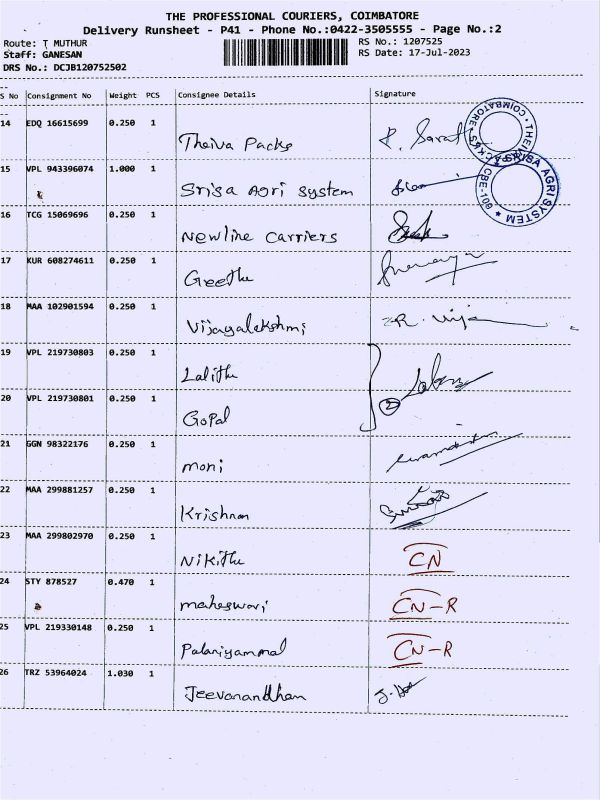 THE PROFESSIONAL COURIERS, COIMBATORE
Delivery Runsheet - P41 - Phone No.:0422-3505555 - Page No.:2
Route: T MUTHUR RS No.: 1207525
Staff: GANESAN RS Date: 17-Jul-2023
DRS No.: DCJB120752502
S No Consignment No Weight PCS Consignee Details Signature
14 EDQ 16615699 0.250 1 Theiva Packs R. Sarat
COIMBATORE
15 VPL 943396074 1.000 1 Srisa Agri System
SRISA AGRI SYSTEM ★ CBE-109
16 TCG 15069696 0.250 1 Newline Carriers
17 KUR 608274611 0.250 1 Geetha
18 MAA 102901594 0.250 1 Vijayalekshmi R. Vija
19 VPL 219730803 0.250 1 Lalitha
20 VPL 219730801 0.250 1 Gopal 2
21 GGN 98322176 0.250 1 moni
22 MAA 299881257 0.250 1 Krishnan
23 MAA 299802970 0.250 1 Nikitha CN
24 STY 878527 0.470 1 maheswari CN-R
25 VPL 219330148 0.250 1 Palaniyammal CN-R
26 TRZ 53964024 1.030 1 Jeevanandham